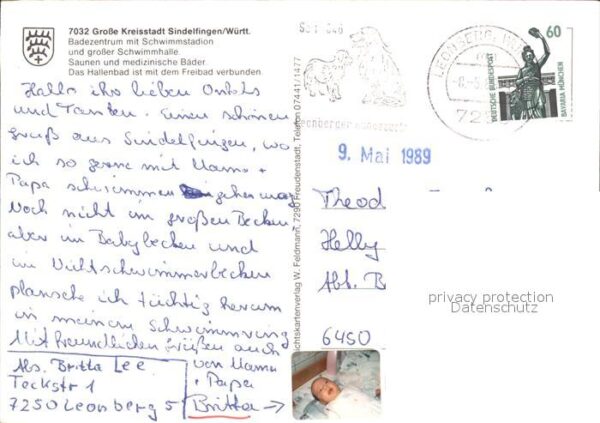 7032 Große Kreisstadt Sindelfingen/Württ.
Badezentrum mit Schwimmstadion
und großer Schwimmhalle.
Saunen und medizinische Bäder.
Das Hallenbad ist mit dem Freibad verbunden.
Hallo ihr lieben Onkels
und Tanten. Einen schönen
gruß aus Sindelfingen, wo
ich so gerne mit Mama +
Papa schwimmen gehen mag
Noch nicht im großen Becken,
aber im Babybecken und
im Nichtschwimmerbecken
plansche ich tüchtig herum
in meinem Schwimmring
Mit freundlichen Grüßen auch
von Mama
+ Papa
Britta →
Abs. Britta Lee
Teckstr 1
7250 Leonberg 5
Ansichtskartenverlag W. Feldmann, 7290 Freudenstadt, Telefon 07441/1477
Leonberger
LEONBERG
72
60
DEUTSCHE BUNDESPOST
BAVARIA MÜNCHEN
9. Mai 1989
Theod
Helly
Abt. B
6450
privacy protection
Datenschutz